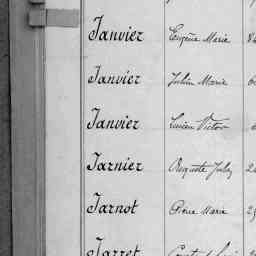 Janvier Eugène Marie
Janvier Julien Marie
Janvier Lucien Victor
Jarnier Auguste Jules
Jarnot Pierre Marie
Jarret